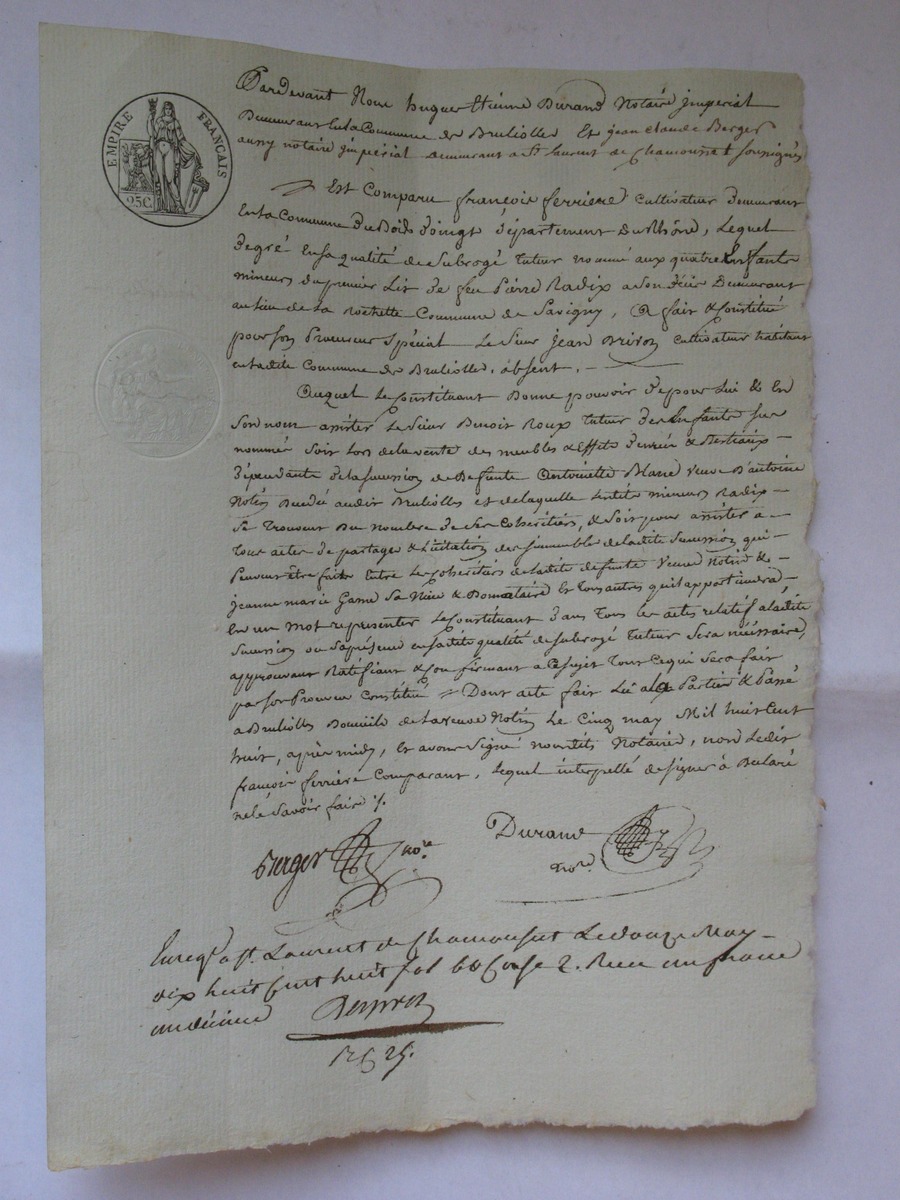 EMPIRE FRANÇAIS
25C.
Pardevant Nous hugues Etienne Durand Notaire jmperial
Demeurant En la Commune de Bruliolles Et jean claude Berger
aussy notaire jmperial demeurant a St. laurent de Chamousset soussignés
Est Comparu françois ferriere Cultivateur demeurant
En la Commune du Bois doingt département du Rhône, Lequel
de gré En sa qualité de subrogé tuteur nommé aux quatre Enfants
mineurs du premier Lit de feu Pierre Radix a son décès Demeurant
au lieu de la Rochette Commune de Savigny, a fait & constitué
pour son Procureur spécial Le Sieur jean Cultivateur habitant
en ladite Commune de Brulliolles, absent, —
Auquel Le Constituant Donne pouvoir de pour Lui & En
Son nom assister Le Sieur Benoit Roux tuteur des Enfants sus
nommés Soit Lors de la vente des meubles & Effets &
dépendants de la succession de Defunte Antoinette Blanc veuve D'antoine
Notin audit Brulliolles et de laquelle Lesdits mineurs Radix
Se Trouvent Du nombre de Ses Coheritiers, & Soit pour assister a
tous actes de partage & Licitation des jmmeubles de ladite Succession qui
Peuvent être faits Entre Les cohéritiers de ladite defunte Veuve Notin &
jeanne marie Sa Niece & Et tous autres qu'il appartiendra,
En un mot representer Le Constituant dans Tous les actes relatifs a ladite
Succession ou Sa présence en sadite qualité de subrogé tuteur Sera nécessaire,
approuvant Ratifiant & Confirmant a Ce sujet Tout Ce qui Sera fait
par son Procureur Constitué Dont acte fait Lû aux Parties & Passé
a Brulliolles Domicile de la veuve Notin Le Cinq may Mil huit Cent
huit, après midy, Et avons Signé nousdits Notaires, non Ledit
françois ferriere Comparant, Lequel interpellé de signer à Declaré
ne le Savoir faire ./.
Berger nore.
Durand
nore.
Enregé. a St. Laurent de Chamousset Le douze May
dix huit Cent huit fol 60 Case 2. Recu un franc
un décime